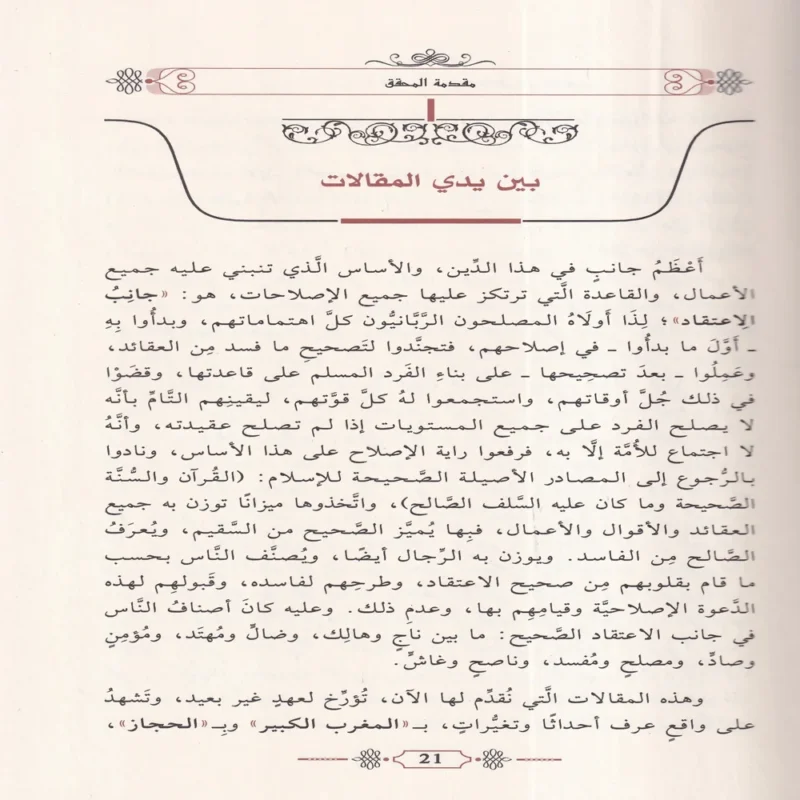 مقدمة المحقق
بين يدي المقالات
أَعْظَمُ جانبٍ في هذا الدِّين، والأساس الَّذي تنبني عليه جميع
الأعمال، والقاعدة الَّتي ترتكز عليها جميع الإصلاحات، هو: «جانِبُ
الاِعتقاد»؛ لِذَا أَولَاهُ المصلحون الرَّبَّانيُّون كلَّ اهتماماتهم، وبدأُوا بِهِ
ـ أوَّلَ ما بدأُوا ـ في إصلاحهم، فتجنَّدوا لتَصحيحِ ما فسد مِن العقائد،
وعَمِلُوا ـ بعدَ تصحيحِها ـ على بناءِ الفَرد المسلم على قاعدتها، وقضَوْا
في ذلك جُلَّ أوقاتهم، واستجمعوا لهُ كلَّ قوَّتهم، ليقينِهم التَّامِّ بأنَّه
لا يصلح الفرد على جميع المستويات إذا لم تصلح عقيدته، وأنَّهُ
لا اجتماع للأُمَّة إلَّا به، فرفعوا راية الإصلاح على هذا الأساس، ونادوا
بالرُّجوع إلى المصادر الأصيلة الصَّحيحة للإسلام: (القُرآن والسُّنَّة
الصَّحيحة وما كان عليه السَّلف الصَّالح)، واتَّخذوها ميزانًا توزن به جميع
العقائد والأقوال والأعمال، فبِها يُميَّز الصَّحيح من السَّقيم، ويُعرَفُ
الصَّالح مِن الفاسد. ويوزن به الرِّجال أيضًا، ويُصنَّف النَّاس بحسب
ما قام بقلوبهم مِن صحيح الاعتقاد، وطرحِهم لفاسده، وقَبولِهم لهذه
الدَّعوة الإصلاحيَّة وقيامِهم بها، وعدمِ ذلك. وعليه كانَ أصنافُ النَّاس
في جانب الاعتقاد الصَّحيح: ما بين ناجٍ وهالِك، وضالٍّ ومُهتَد، ومُؤمِنٍ
وصادٍّ، ومصلحٍ ومُفسد، وناصحٍ وغاشٍّ.
وهذه المقالات الَّتي نُقدِّم لها الآن، تُؤرِّخ لعهدٍ غير بعيد، وتَشهدُ
على واقعٍ عرف أحداثًا وتغيُّراتٍ، بـ«المغرب الكبير» وبِـ«الحجاز»،
21